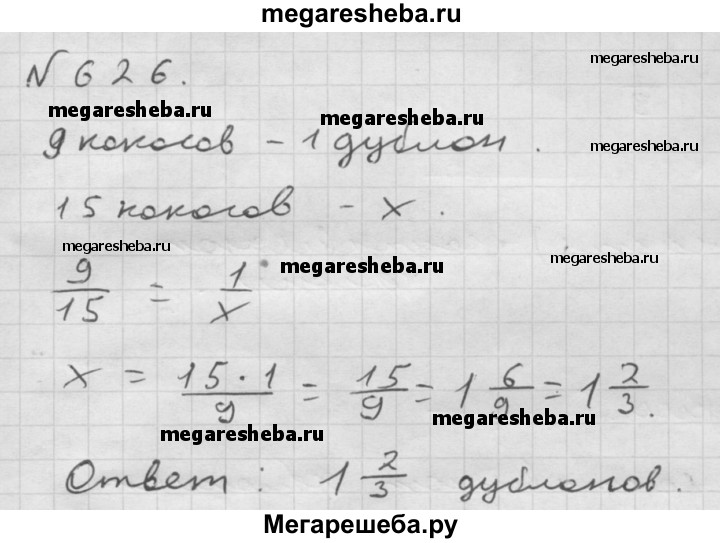 megaresheba.ru
№ 626.
megaresheba.ru
megaresheba.ru
megaresheba.ru
9 кокосов - 1 дублон.
megaresheba.ru
15 кокосов - x.
megaresheba.ru
megaresheba.ru
megaresheba.ru
9/15 = 1/x
x = 15·1/9 = 15/9 = 1 6/9 = 1 2/3.
megaresheba.ru
megaresheba.ru
Ответ: 1 2/3 дублонов.
Мегарешеба.ру